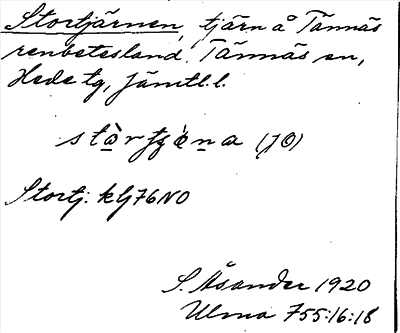 Stortjärnen, tjärn å Tännäs
renbetesland, Tännäs sn,
Hede tg, Jämtl. l.
(JO)
Stortj: kbj 76 NO
S. Åsander 1920
Ulma 755:16:18